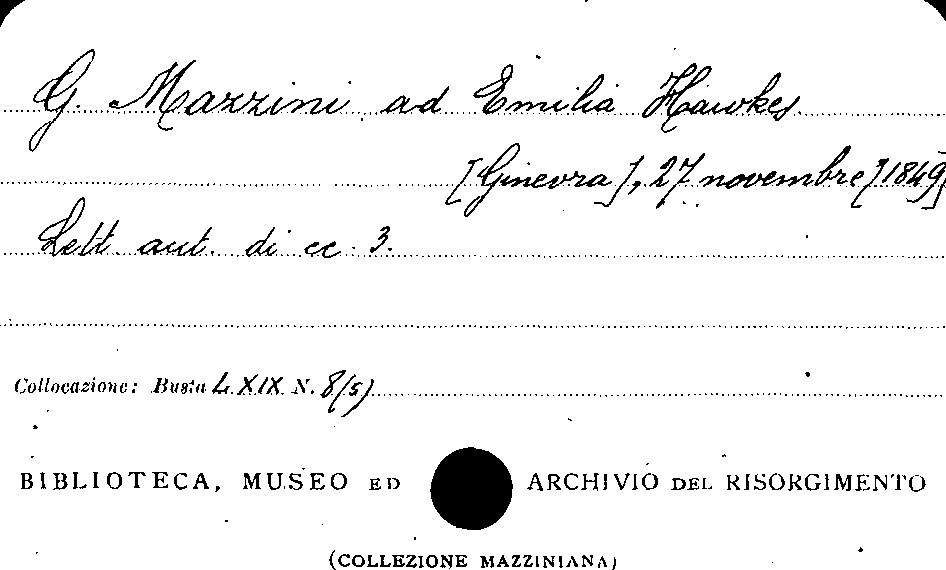 G. Mazzini ad Emilia Hawkes.
[Ginevra], 27 novembre [1849]
Lett. aut. di cc. 3.
Collocazione: Busta LXIX N. 8(5)
BIBLIOTECA, MUSEO ED ARCHIVIO DEL RISORGIMENTO
(COLLEZIONE MAZZINIANA)